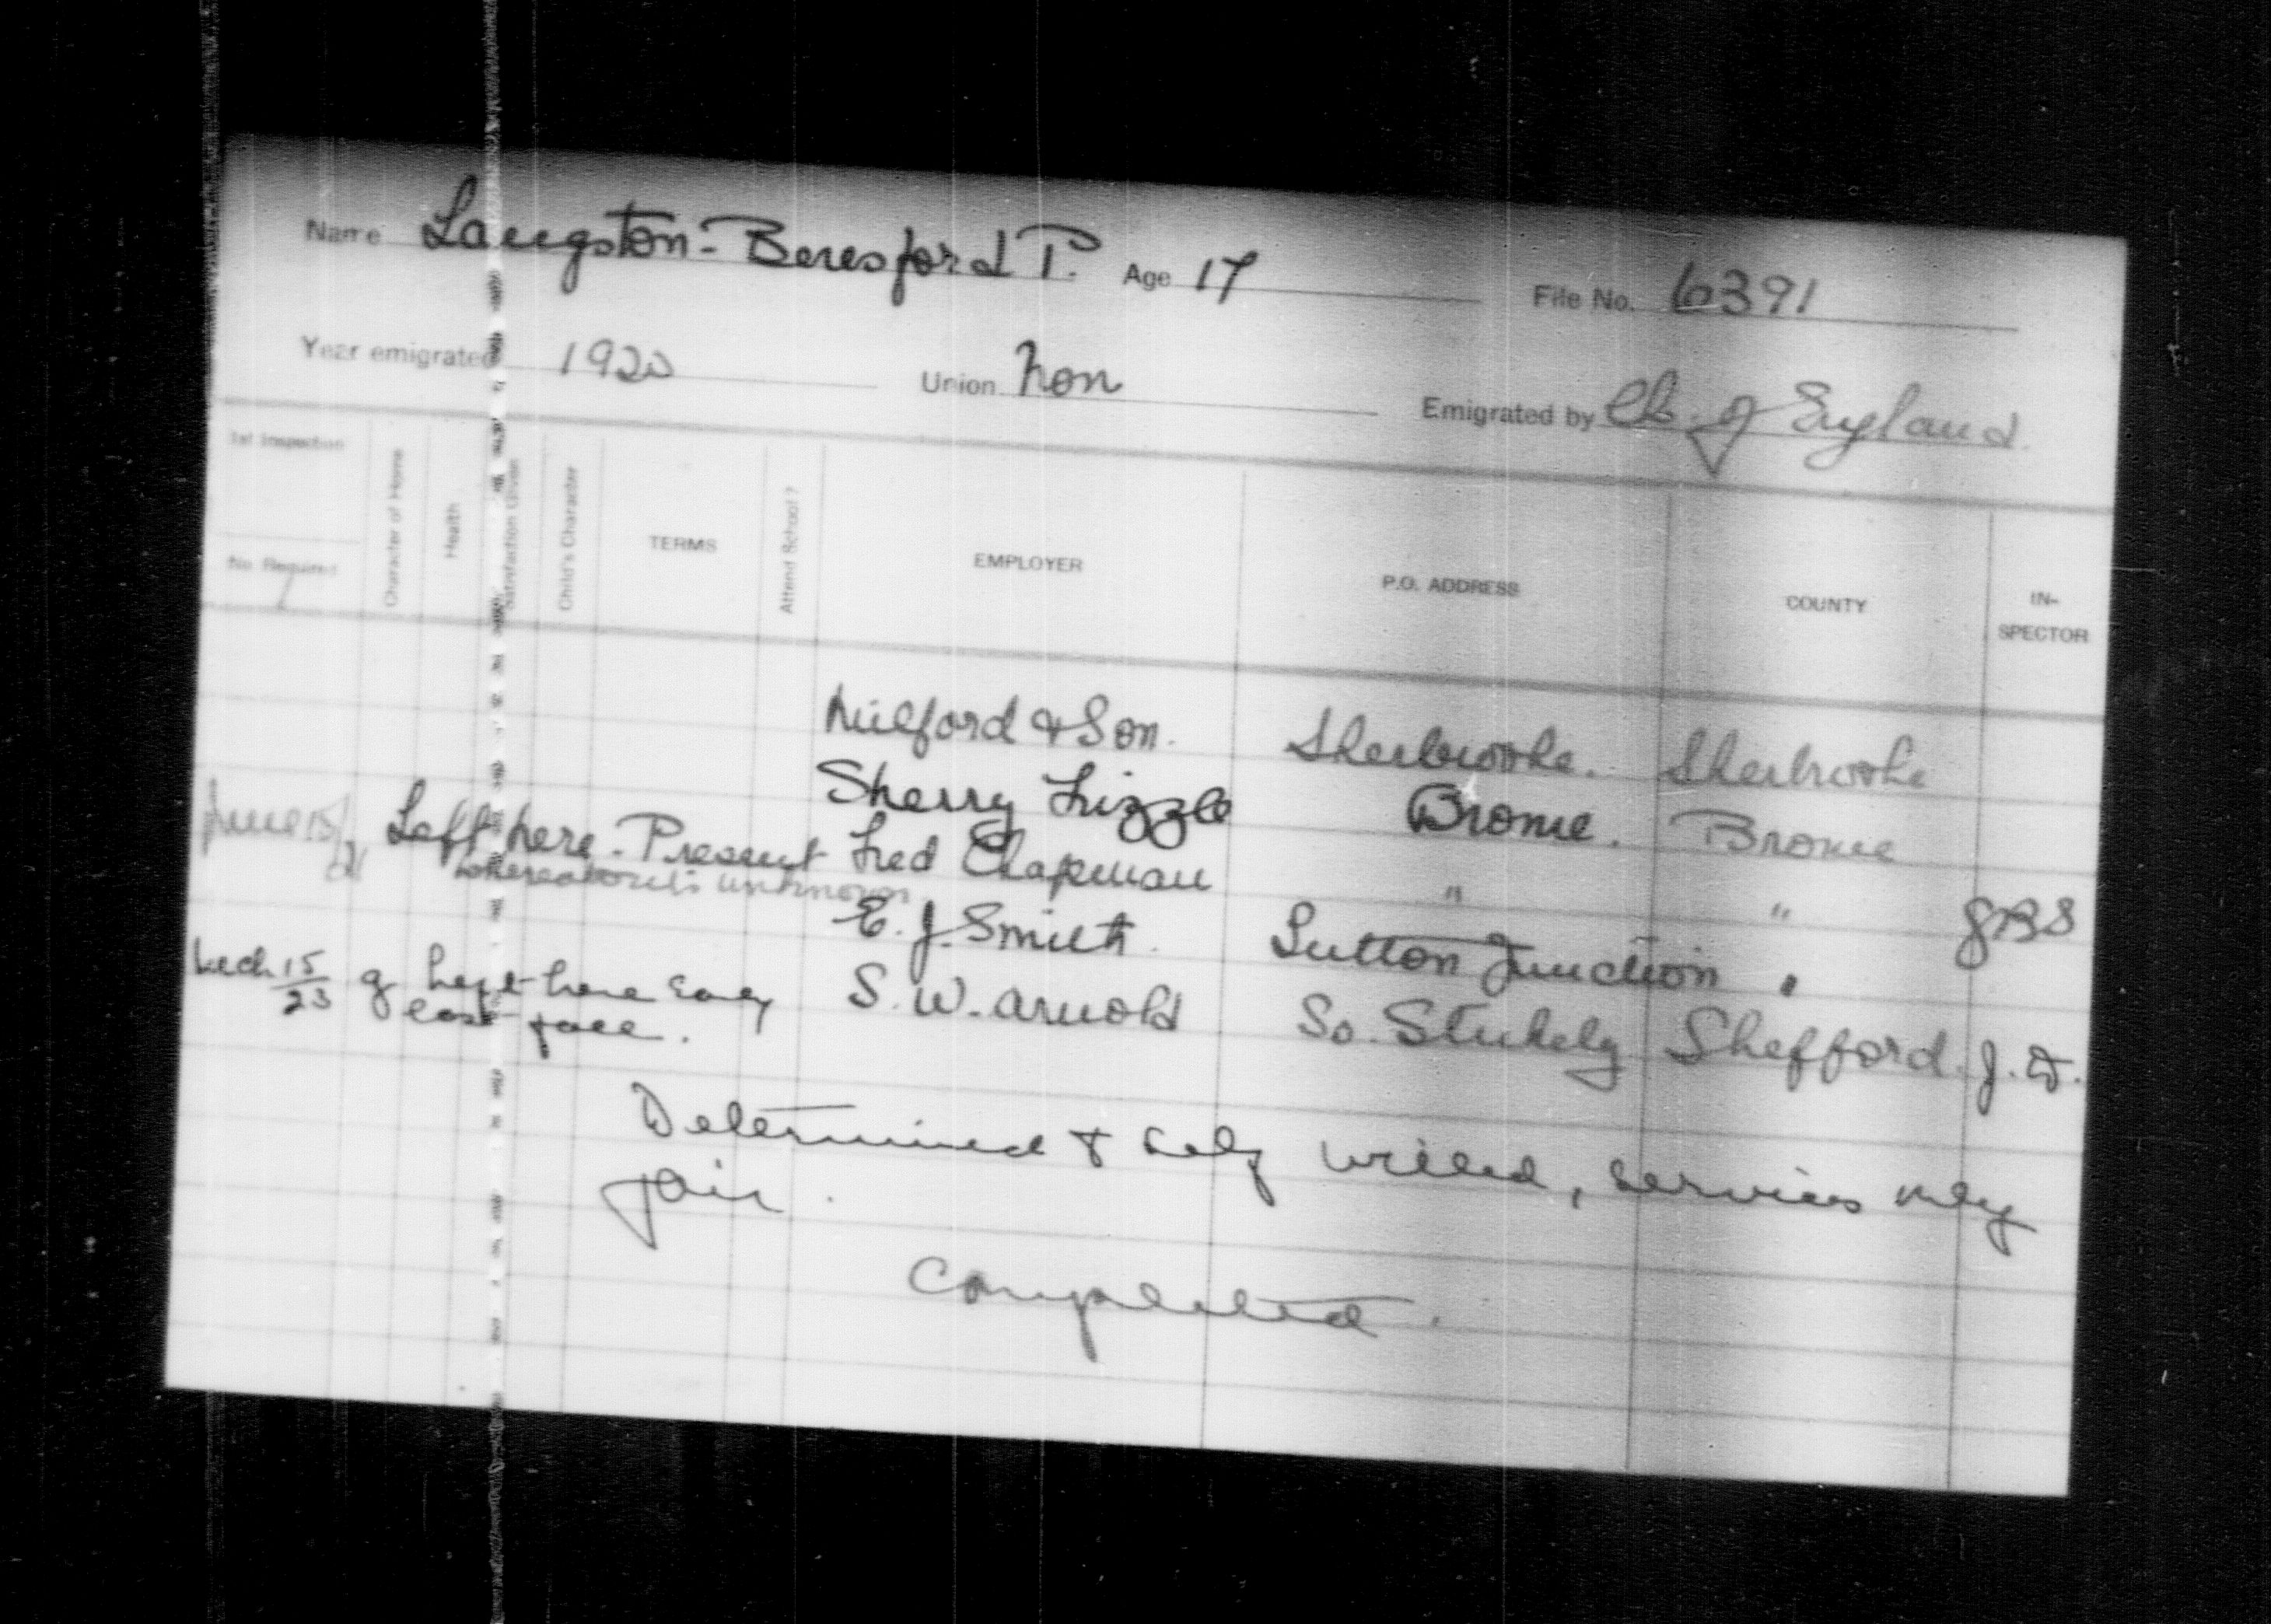 Name Langston-Beresford P. Age 17 File No. 6391
Year emigrated 1920 Union Non Emigrated by Ch. of England
1st Inspection
No Required 1
Character of Home
Health
Satisfaction Given
Child's Character
TERMS
Attend School?
EMPLOYER
P.O. ADDRESS
COUNTY
IN-
SPECTOR
Milford & Son. Sherbrooke. Sherbrooke
Sherry Lizzle Brome. Brome
June 15/21 Left here. Present Fred Chapman " " GBS
whereabouts unknown
E. J. Smith. Sutton Junction "
Mch 15/23 g left here early S. W. Arnold So. Stukely Shefford. J. D.
last fall.
Determined & self willed, services only
fair.
Completed.